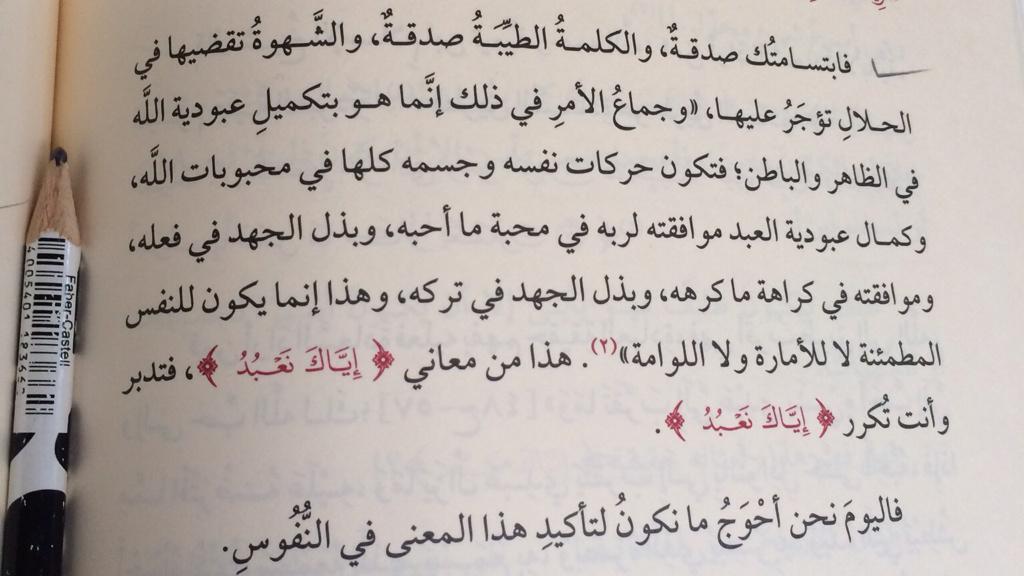 فابتسامتُك صدقةٌ، والكلمةُ الطيِّبَةُ صدقةٌ، والشَّهوةُ تقضيها في
الحلالِ تؤجَرُ عليها، «وجماعُ الأمرِ في ذلك إنَّما هو بتكميلِ عبودية اللَّه
في الظاهر والباطن؛ فتكون حركات نفسه وجسمه كلها في محبوبات اللَّه،
وكمال عبودية العبد موافقته لربه في محبة ما أحبه، وبذل الجهد في فعله،
وموافقته في كراهة ما كرهه، وبذل الجهد في تركه، وهذا إنما يكون للنفس
المطمئنة لا للأمارة ولا اللوامة»(٢). هذا من معاني ﴿إِيَّاكَ نَعْبُدُ﴾، فتدبر
وأنت تُكرر ﴿إِيَّاكَ نَعْبُدُ﴾.
فاليومَ نحن أحْوَجُ ما نكونُ لتأكيدِ هذا المعنى في النُّفُوسِ.
Faber-Castell